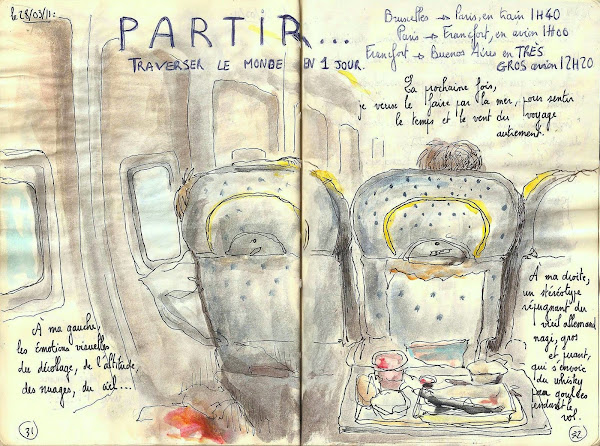 le 28/03/11:
PARTIR...
TRAVERSER LE MONDE EN 1 JOUR.
Bruxelles → Paris, en train 1H40
Paris → Francfort, en avion 1H00
Francfort → Buenos Aires en TRÈS
GROS avion 12H20
La prochaine fois,
je veux le faire par la mer, pour sentir
le temps et le vent du voyage
autrement.
À ma gauche,
les émotions visuelles
du décollage, de l'altitude,
des nuages, du ciel...
À ma droite,
un stéréotype
répugnant du
vieil allemand
nazi, gros
et puant,
qui s'envoie
du whisky
par goulées
pendant le
vol.
31
32